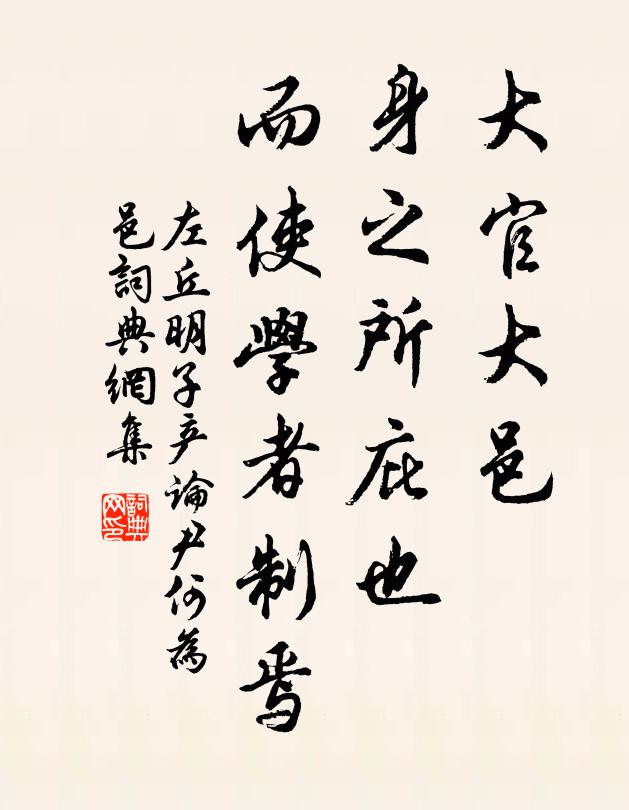 大官大邑
身之所庇也
而使學者制焉
左丘明子產論尹何為
邑詞典網集
詞典网印